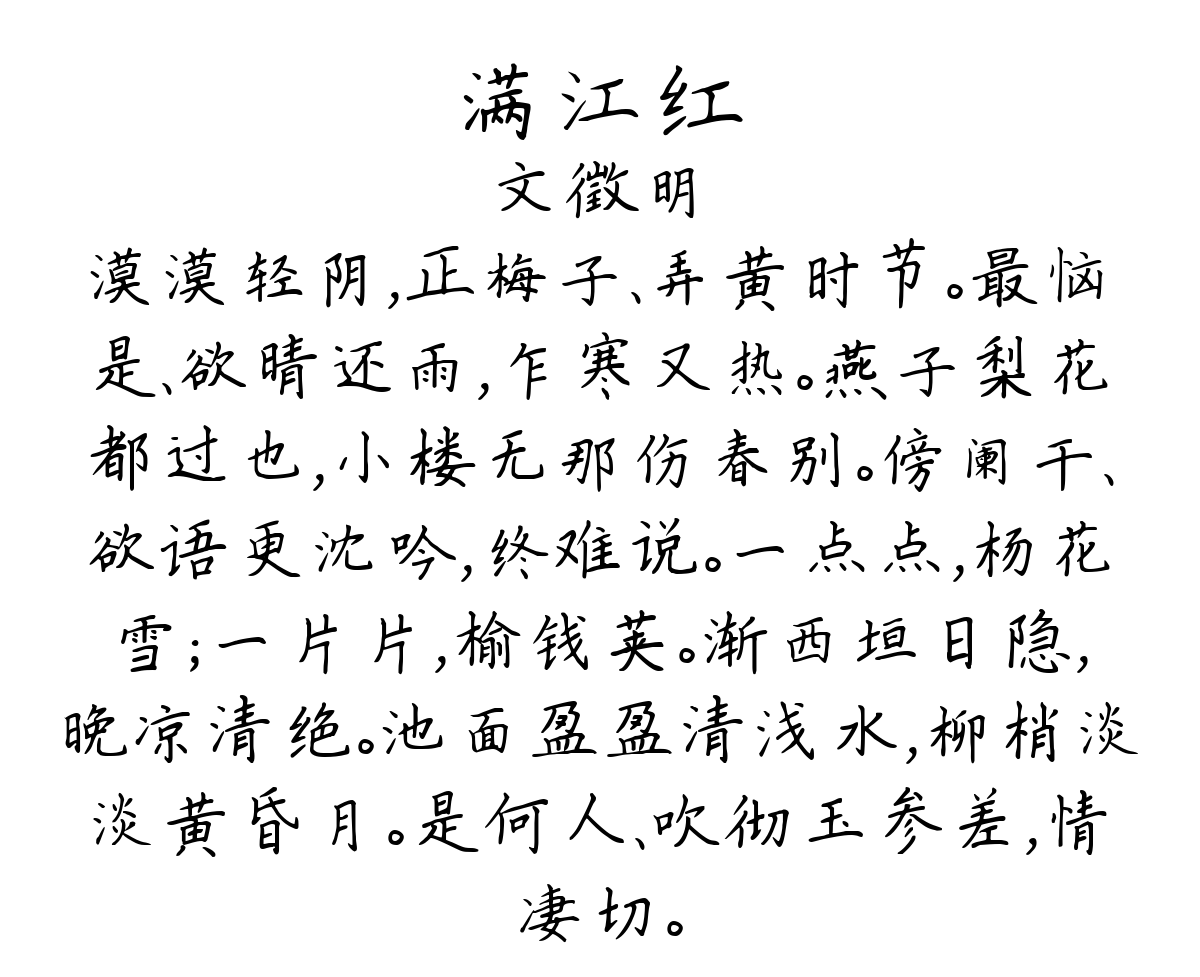 满江红
文徵明
漠漠轻阴,正梅子、弄黄时节。最恼
是、欲晴还雨,乍寒又热。燕子梨花
都过也,小楼无那伤春别。傍阑干、
欲语更沈吟,终难说。一点点,杨花
雪;一片片,榆钱荚。渐西垣日隐,
晚凉清绝。池面盈盈清浅水,柳梢淡
淡黄昏月。是何人、吹彻玉参差,情
凄切。